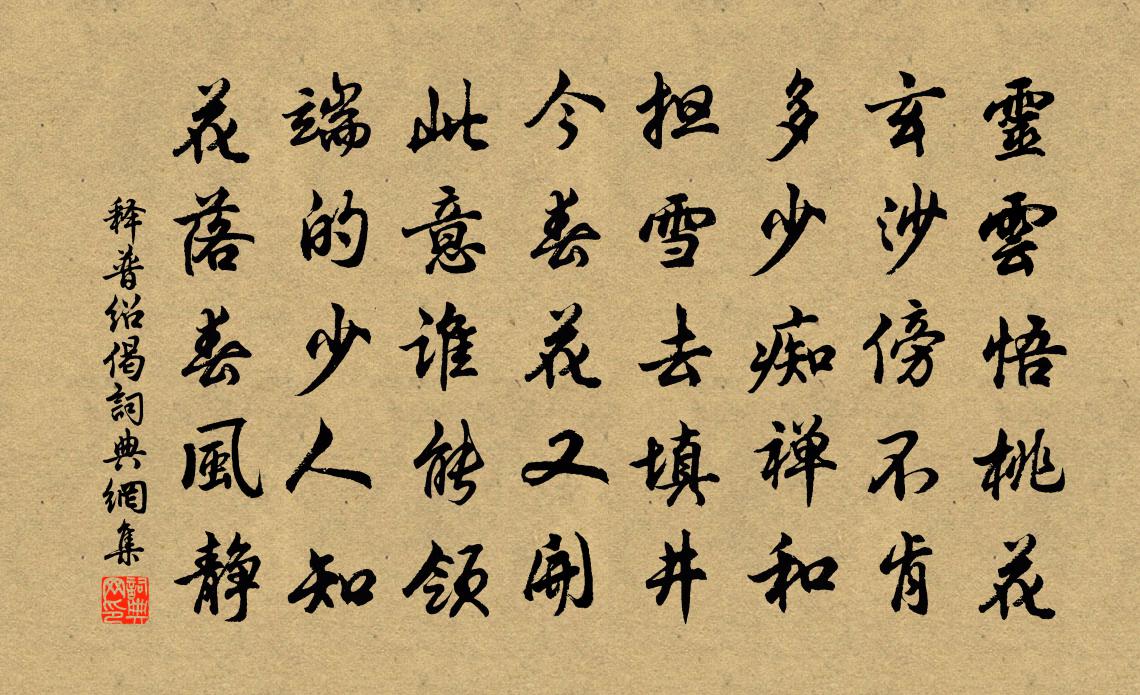 靈雲悟桃花
玄沙傍不肯
多少痴禅和
担雪去填井
今春花又開
此意誰能領
端的少人知
花落春風静
释普绍偈詞典網集
詞典网印